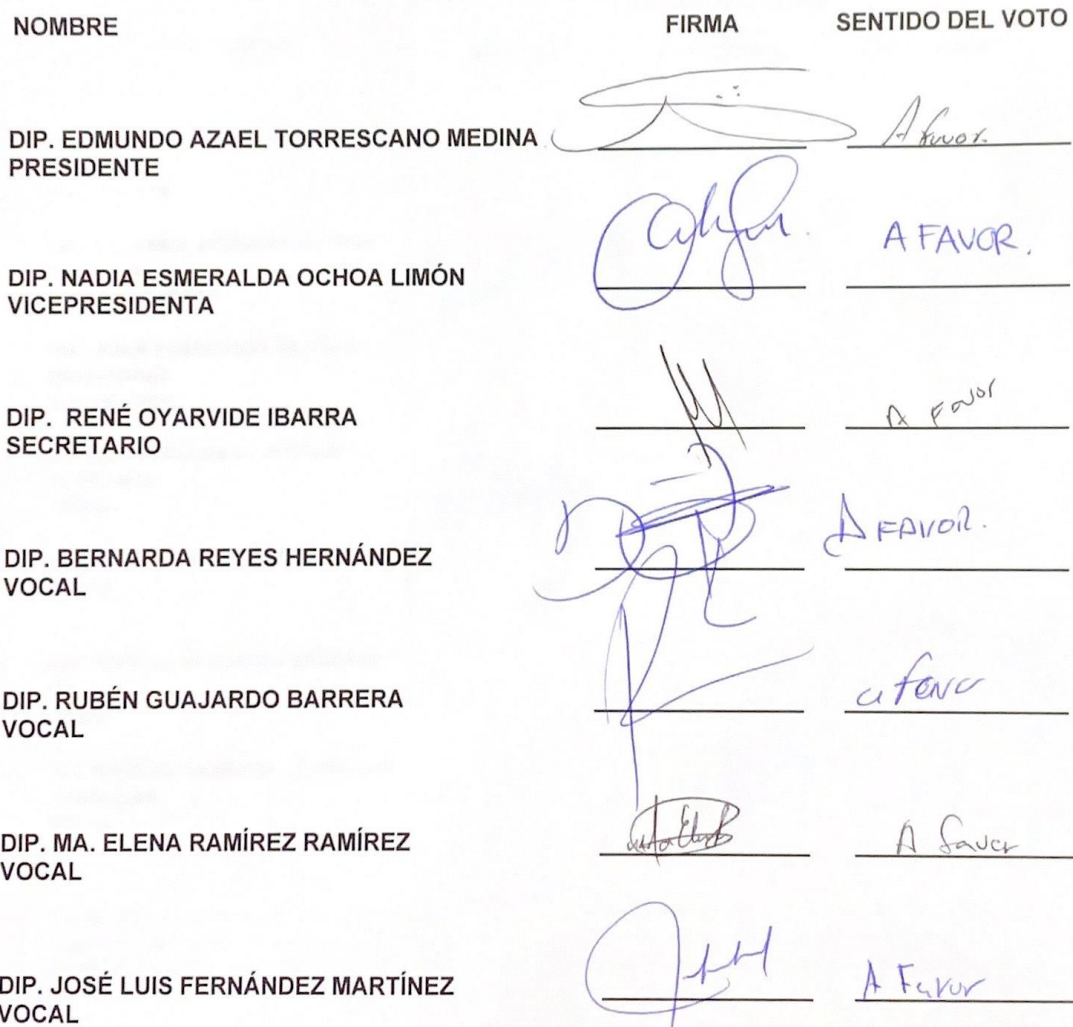 NOMBRE FIRMA SENTIDO DEL VOTO
DIP. EDMUNDO AZAEL TORRESCANO MEDINA A favor.
PRESIDENTE
A FAVOR.
DIP. NADIA ESMERALDA OCHOA LIMÓN
VICEPRESIDENTA
DIP. RENÉ OYARVIDE IBARRA A Favor
SECRETARIO
A FAVOR.
DIP. BERNARDA REYES HERNÁNDEZ
VOCAL
DIP. RUBÉN GUAJARDO BARRERA a favor
VOCAL
DIP. MA. ELENA RAMÍREZ RAMÍREZ A favor
VOCAL
DIP. JOSÉ LUIS FERNÁNDEZ MARTÍNEZ A Favor
VOCAL